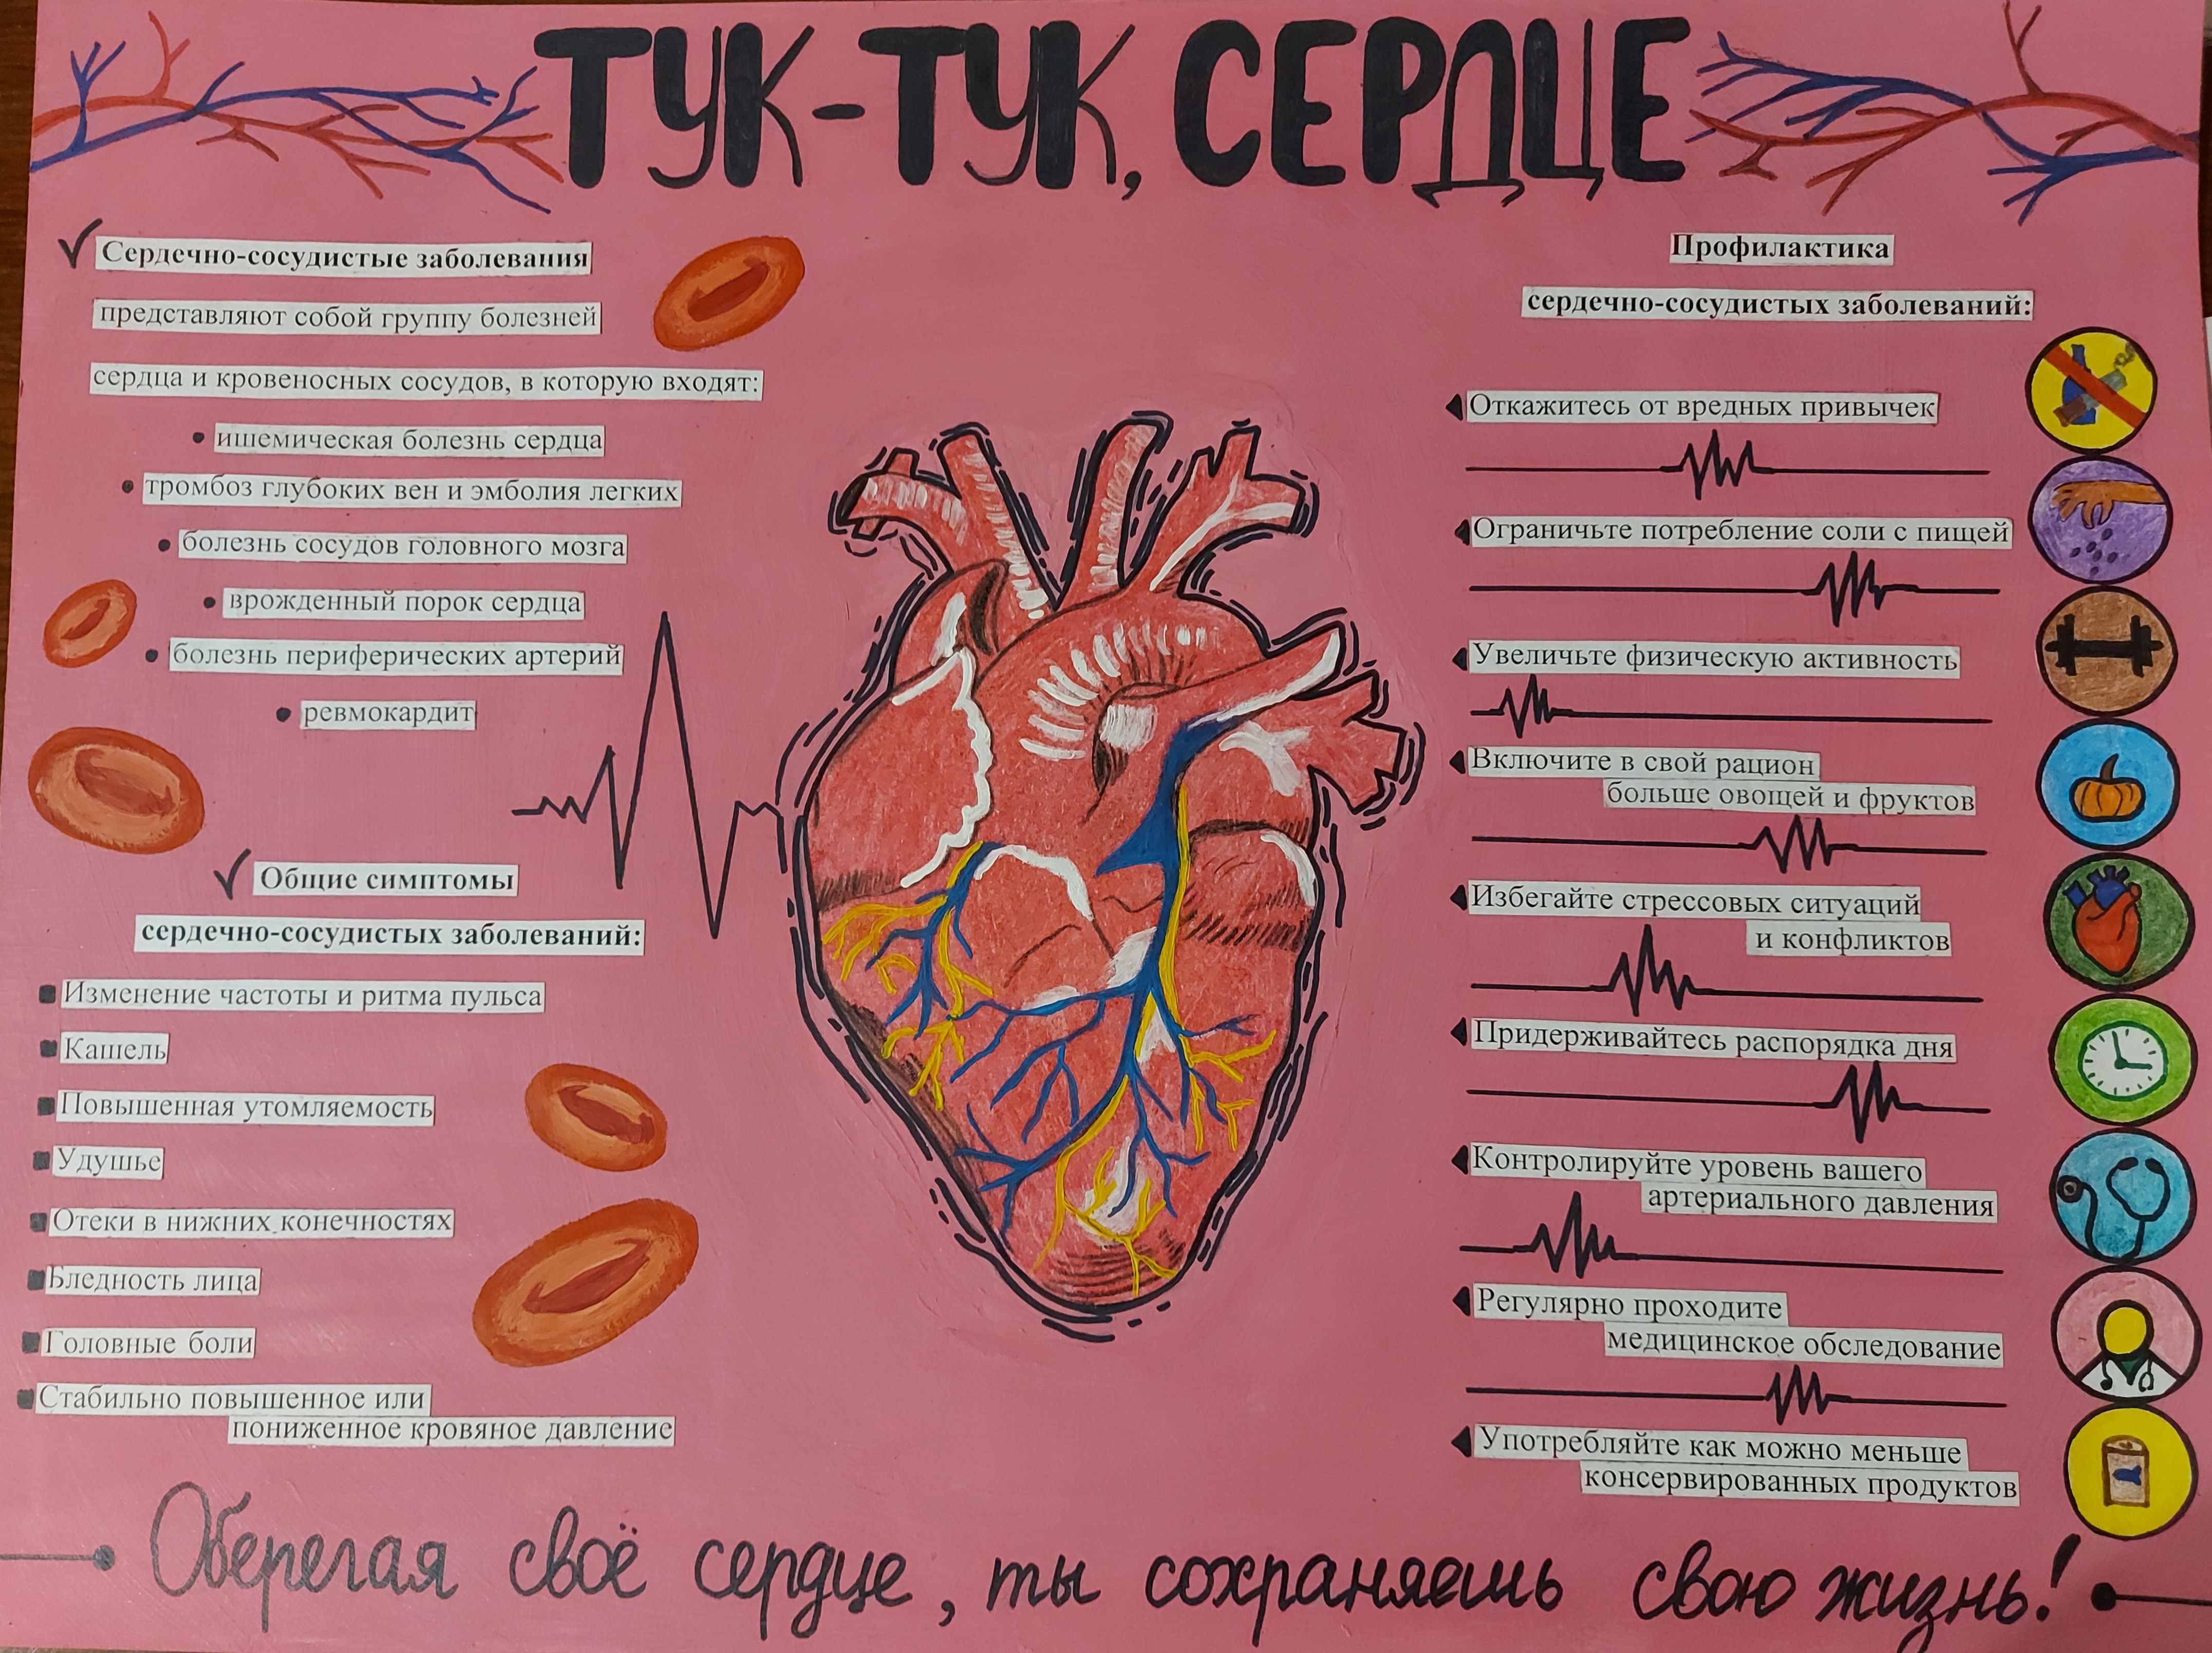 ТУК-ТУК, СЕРДЦЕ
Сердечно-сосудистые заболевания
представляют собой группу болезней
сердца и кровеносных сосудов, в которую входят:
ишемическая болезнь сердца
тромбоз глубоких вен и эмболия легких
болезнь сосудов головного мозга
врожденный порок сердца
болезнь периферических артерий
ревмокардит
Общие симптомы
сердечно-сосудистых заболеваний:
Изменение частоты и ритма пульса
Кашель
Повышенная утомляемость
Удушье
Отеки в нижних конечностях
Бледность лица
Головные боли
Стабильно повышенное или
пониженное кровяное давление
Профилактика
сердечно-сосудистых заболеваний:
Откажитесь от вредных привычек
Ограничьте потребление соли с пищей
Увеличьте физическую активность
Включите в свой рацион
больше овощей и фруктов
Избегайте стрессовых ситуаций
и конфликтов
Придерживайтесь распорядка дня
Контролируйте уровень вашего
артериального давления
Регулярно проходите
медицинское обследование
Употребляйте как можно меньше
консервированных продуктов
Оберегая своё сердце, ты сохраняешь свою жизнь!